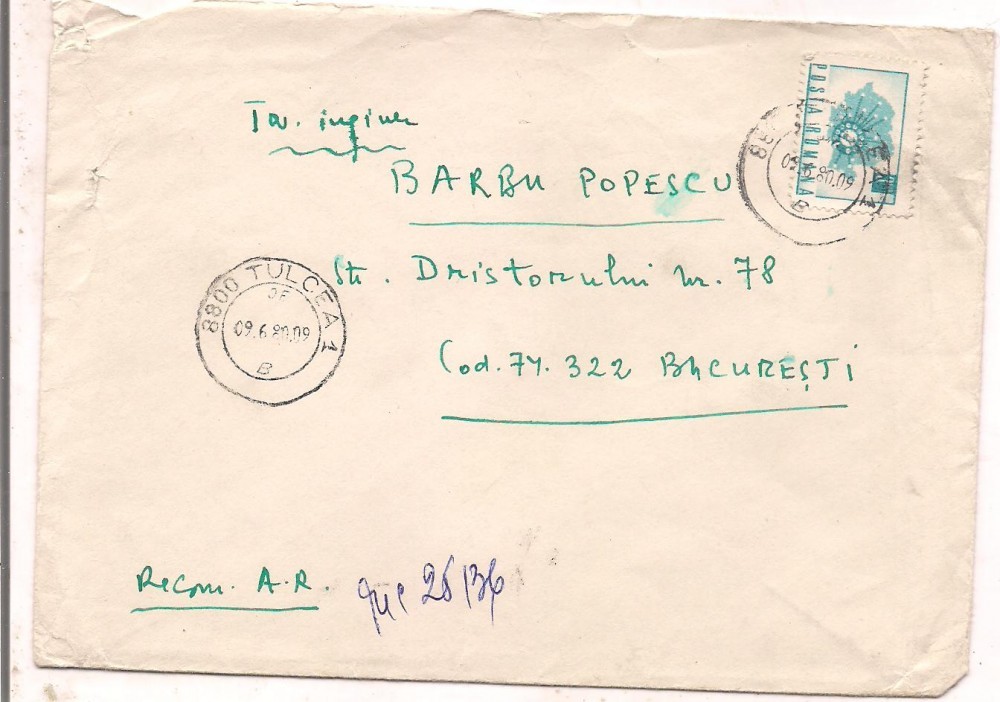 Tov. inginer
BARBU POPESCU
Str. Dristorului nr. 78
Cod. 74. 322 BUCUREŞTI
POSTA ROMANA
09.6.80.09
B
8800 TULCEA 1
09.6.80.09
B
Recom. A.R.